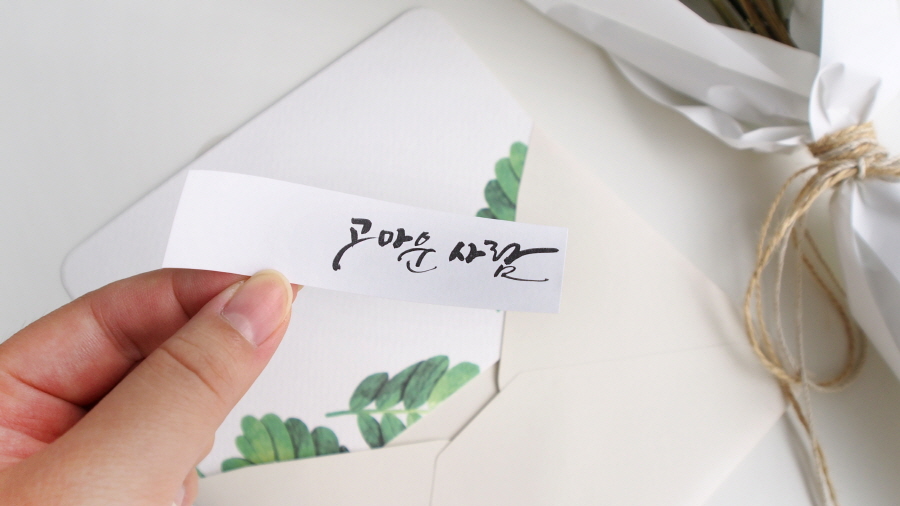 고마운 사람